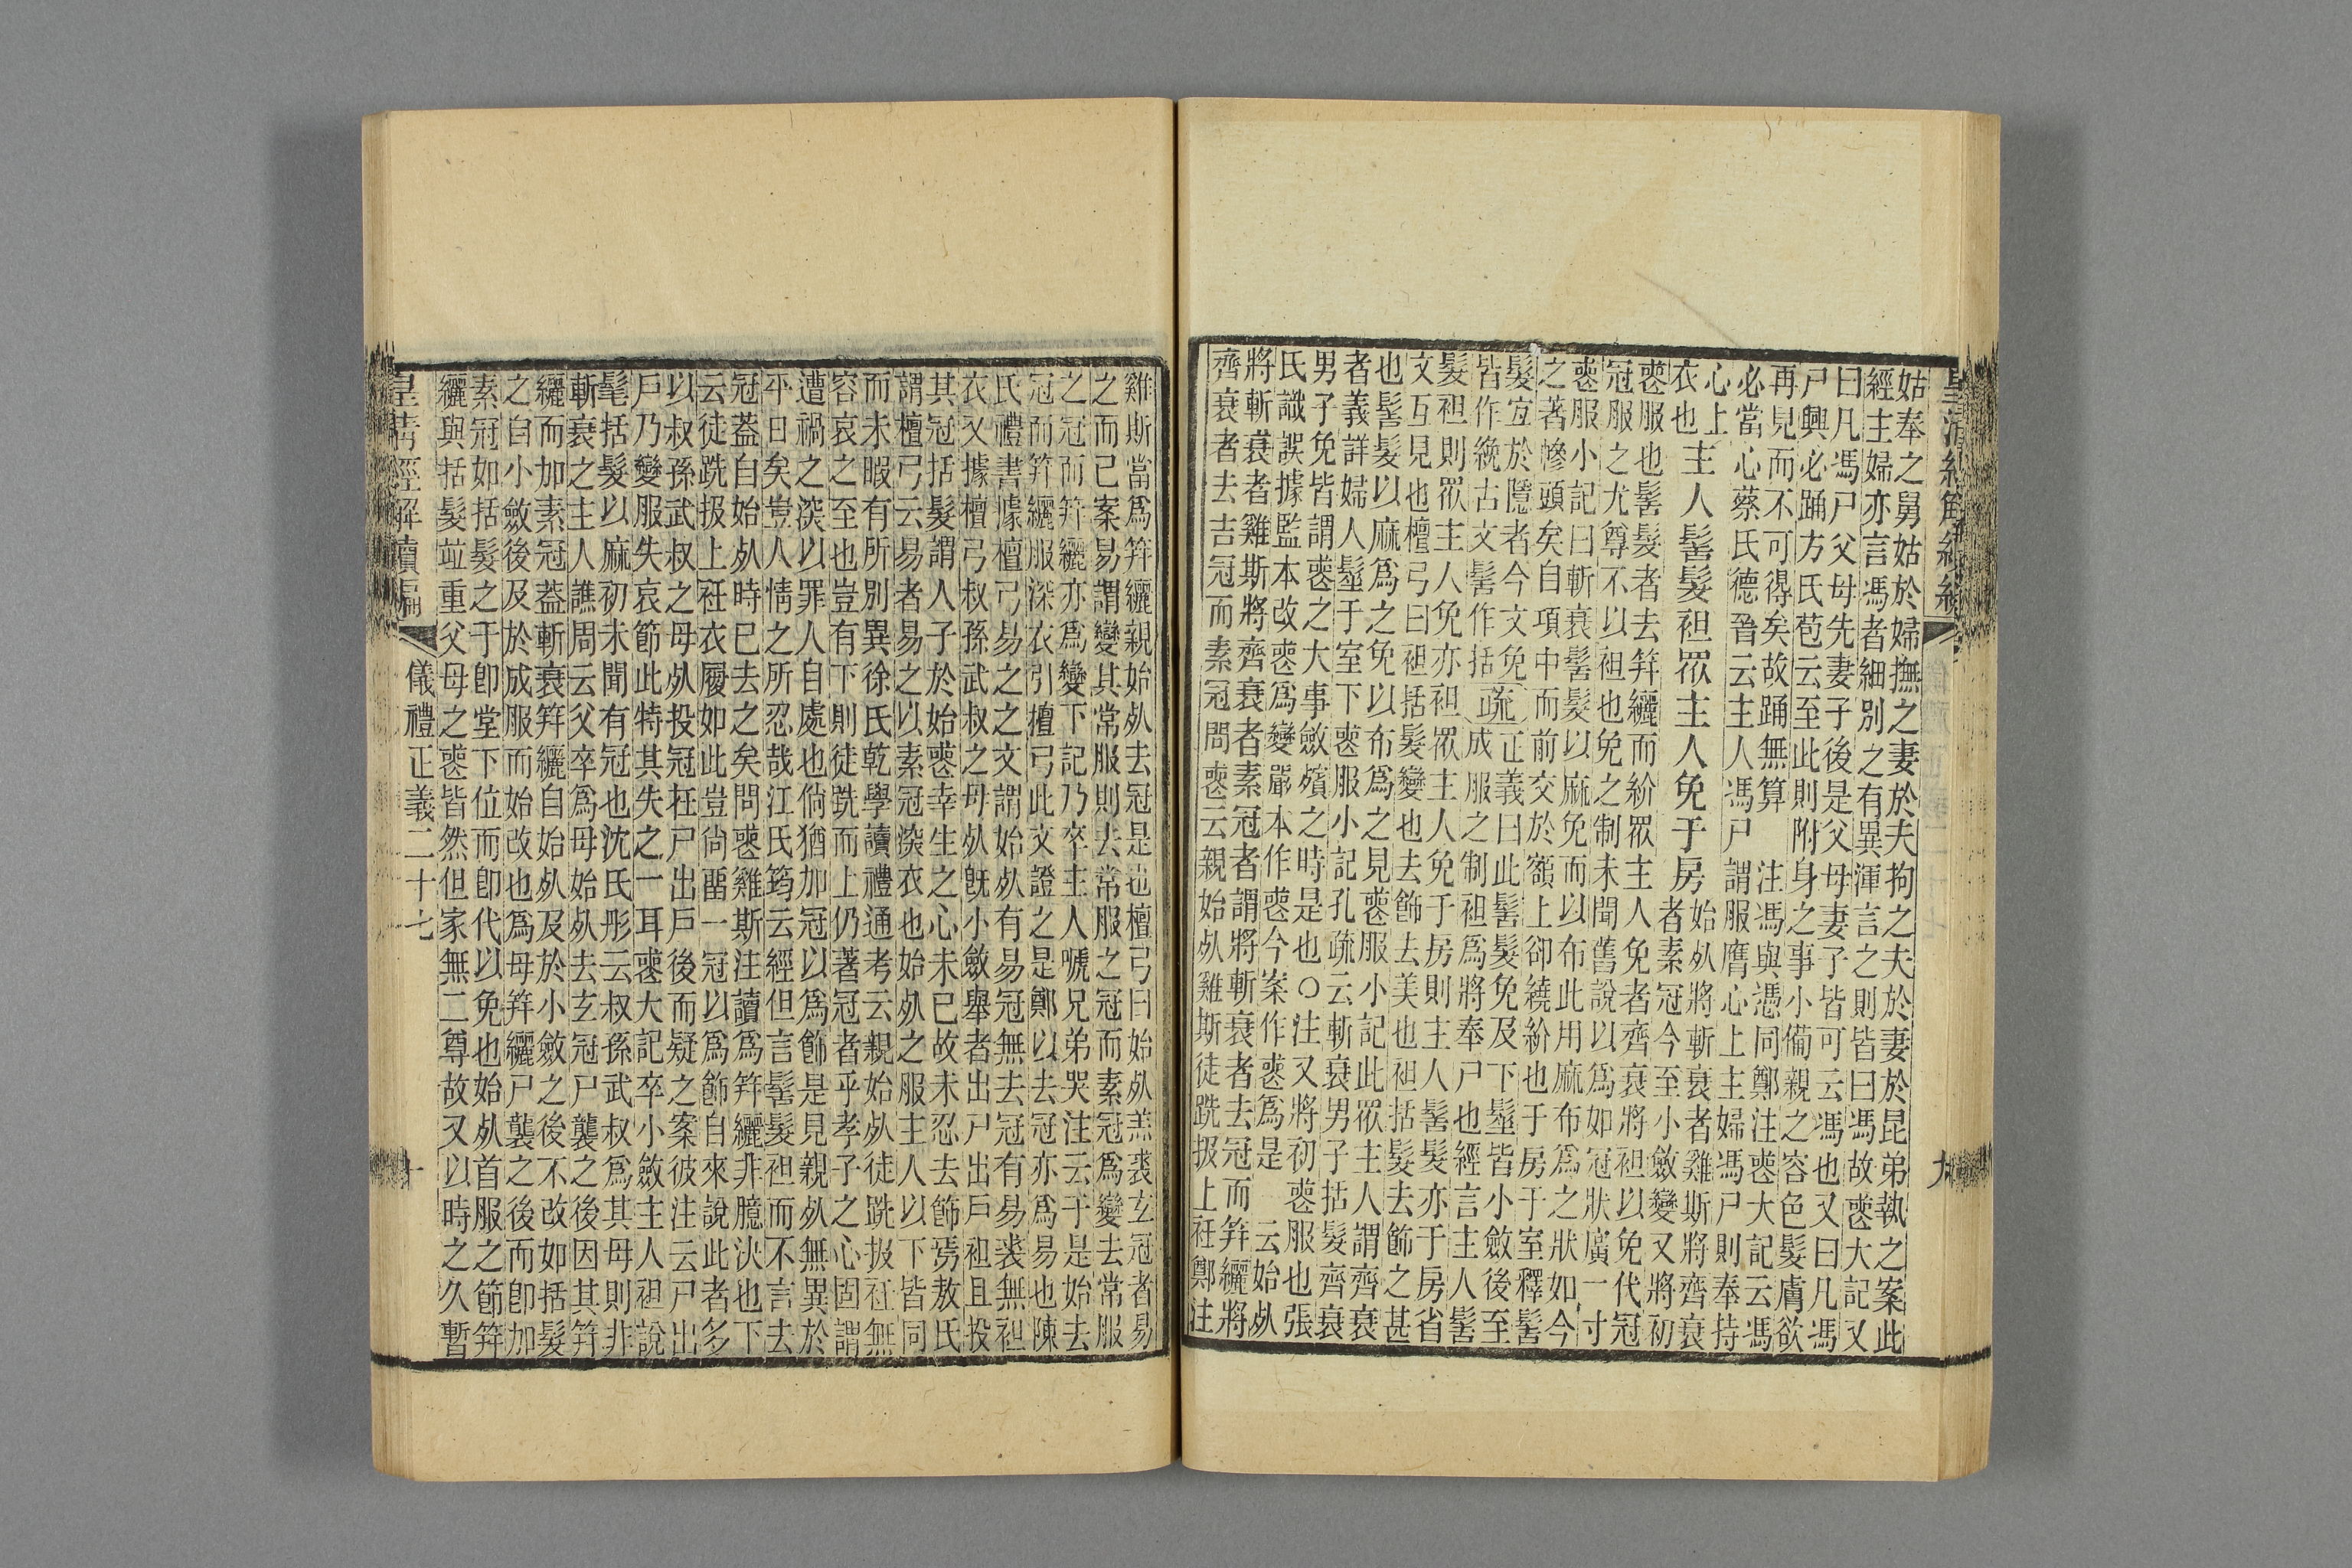 姑奉之舅姑於婦撫之妻於夫拘之夫於妻於昆弟執之案此
經主婦亦言馮者細別之有異渾言之則皆曰馮故喪大記又
曰凡馮尸父母先妻子後是父母妻子皆可云馮也又曰凡馮
尸興必踊方氏苞云至此則附身之事小備親之容色髮膚欲
再見而不可得矣故踊無算 注馮與憑同鄭注喪大記云馮
必當心蔡氏德晉云主人馮尸 謂服膺心上主婦馮尸則奉持
心上
衣也
主人髺髮袒眾主人免于房
始死將斬衰者雞斯將齊衰
者素冠今至小斂變又將初
喪服也髺髮者去笄纚而紒眾主人免者齊衰將袒以免代冠
冠服之尤尊不以袒也免之制未聞舊說以為如冠狀廣一寸
喪服小記曰斬衰髺髮以麻免而以布此用麻布為之狀如今
之著幓頭矣自項中而前交於額上卻繞紒也于房于室釋髺
髮宜於隱者今文免 疏 正義曰此髺髮免及下髽皆小斂後至
皆作絻古文髺作括 成服之制袒為將奉尸也經言主人髺
髮袒則眾主人免亦袒眾主人免于房則主人髺髮亦于房省
文互見也檀弓曰袒括髮變也去飾去美也袒括髮去飾之甚
也髺髮以麻為之免以布為之見喪服小記此眾主人謂齊衰
者義詳婦人髽于室下喪服小記孔疏云斬衰男子括髮齊衰
男子免皆謂喪之大事斂殯之時是也○注又將初喪服也張
氏識誤據監本改喪為變嚴本作喪今案作喪為是 云始死
將斬衰者雞斯將齊衰者素冠者謂將斬衰者去冠而笄纚將
齊衰者去吉冠而素冠問喪云親始死雞斯徒跣扱上衽鄭注
雞斯當為笄纚親始死去冠是也檀弓曰始死羔裘玄冠者易
之而已案易謂變其常服則去常服之冠而素冠為變去常服
之冠而笄纚亦為變下記乃卒主人啼兄弟哭注云于是始去
冠而笄纚服深衣引檀弓此文證之是鄭以去冠亦為易也陳
氏禮書據檀弓易之之文謂始死有易冠無去冠有易裘無袒
衣又據檀弓叔孫武叔之母死既小斂舉者出尸出戶袒且投
其冠括髮謂人子於始喪幸生之心未已故未忍去飾焉敖氏
謂檀弓云易者易之以素冠深衣也始死之服主人以下皆同
而未暇有所別異徐氏乾學讀禮通考云親始死徒跣扱衽無
容哀之至也豈有下則徒跣而上仍著冠者乎孝子之心固謂
遭禍之深以罪人自處也倘猶加冠以為飾是見親死無異於
平日矣豈人情之所忍哉江氏筠云經但言髺髮袒而不言去
冠蓋自始死時已去之矣問喪雞斯注讀為笄纚非臆決也下
云徒跣扱上衽衣履如此豈尚留一冠以為飾自來說此者多
以叔孫武叔之母死投冠在尸出戶後而疑之案彼注云尸出
戶乃變服失哀節此特其失之一耳喪大記卒小斂主人袒說
髦括髮以麻初未聞有冠也沈氏彤云叔孫武叔為其母則非
斬衰之主人譙周云父卒為母始死去玄冠尸襲之後因其笄
纚而加素冠蓋斬衰笄纚自始死及於小斂之後不改如括髮
之自小斂後及於成服而始改也為母笄纚尸襲之後而卽加
素冠如括髮之于卽堂下位而卽代以免也始死首服之節笄
纚與括髮竝重父母之喪皆然但家無二尊故又以時之久暫
皇清經解續編 儀禮正義二十七 十